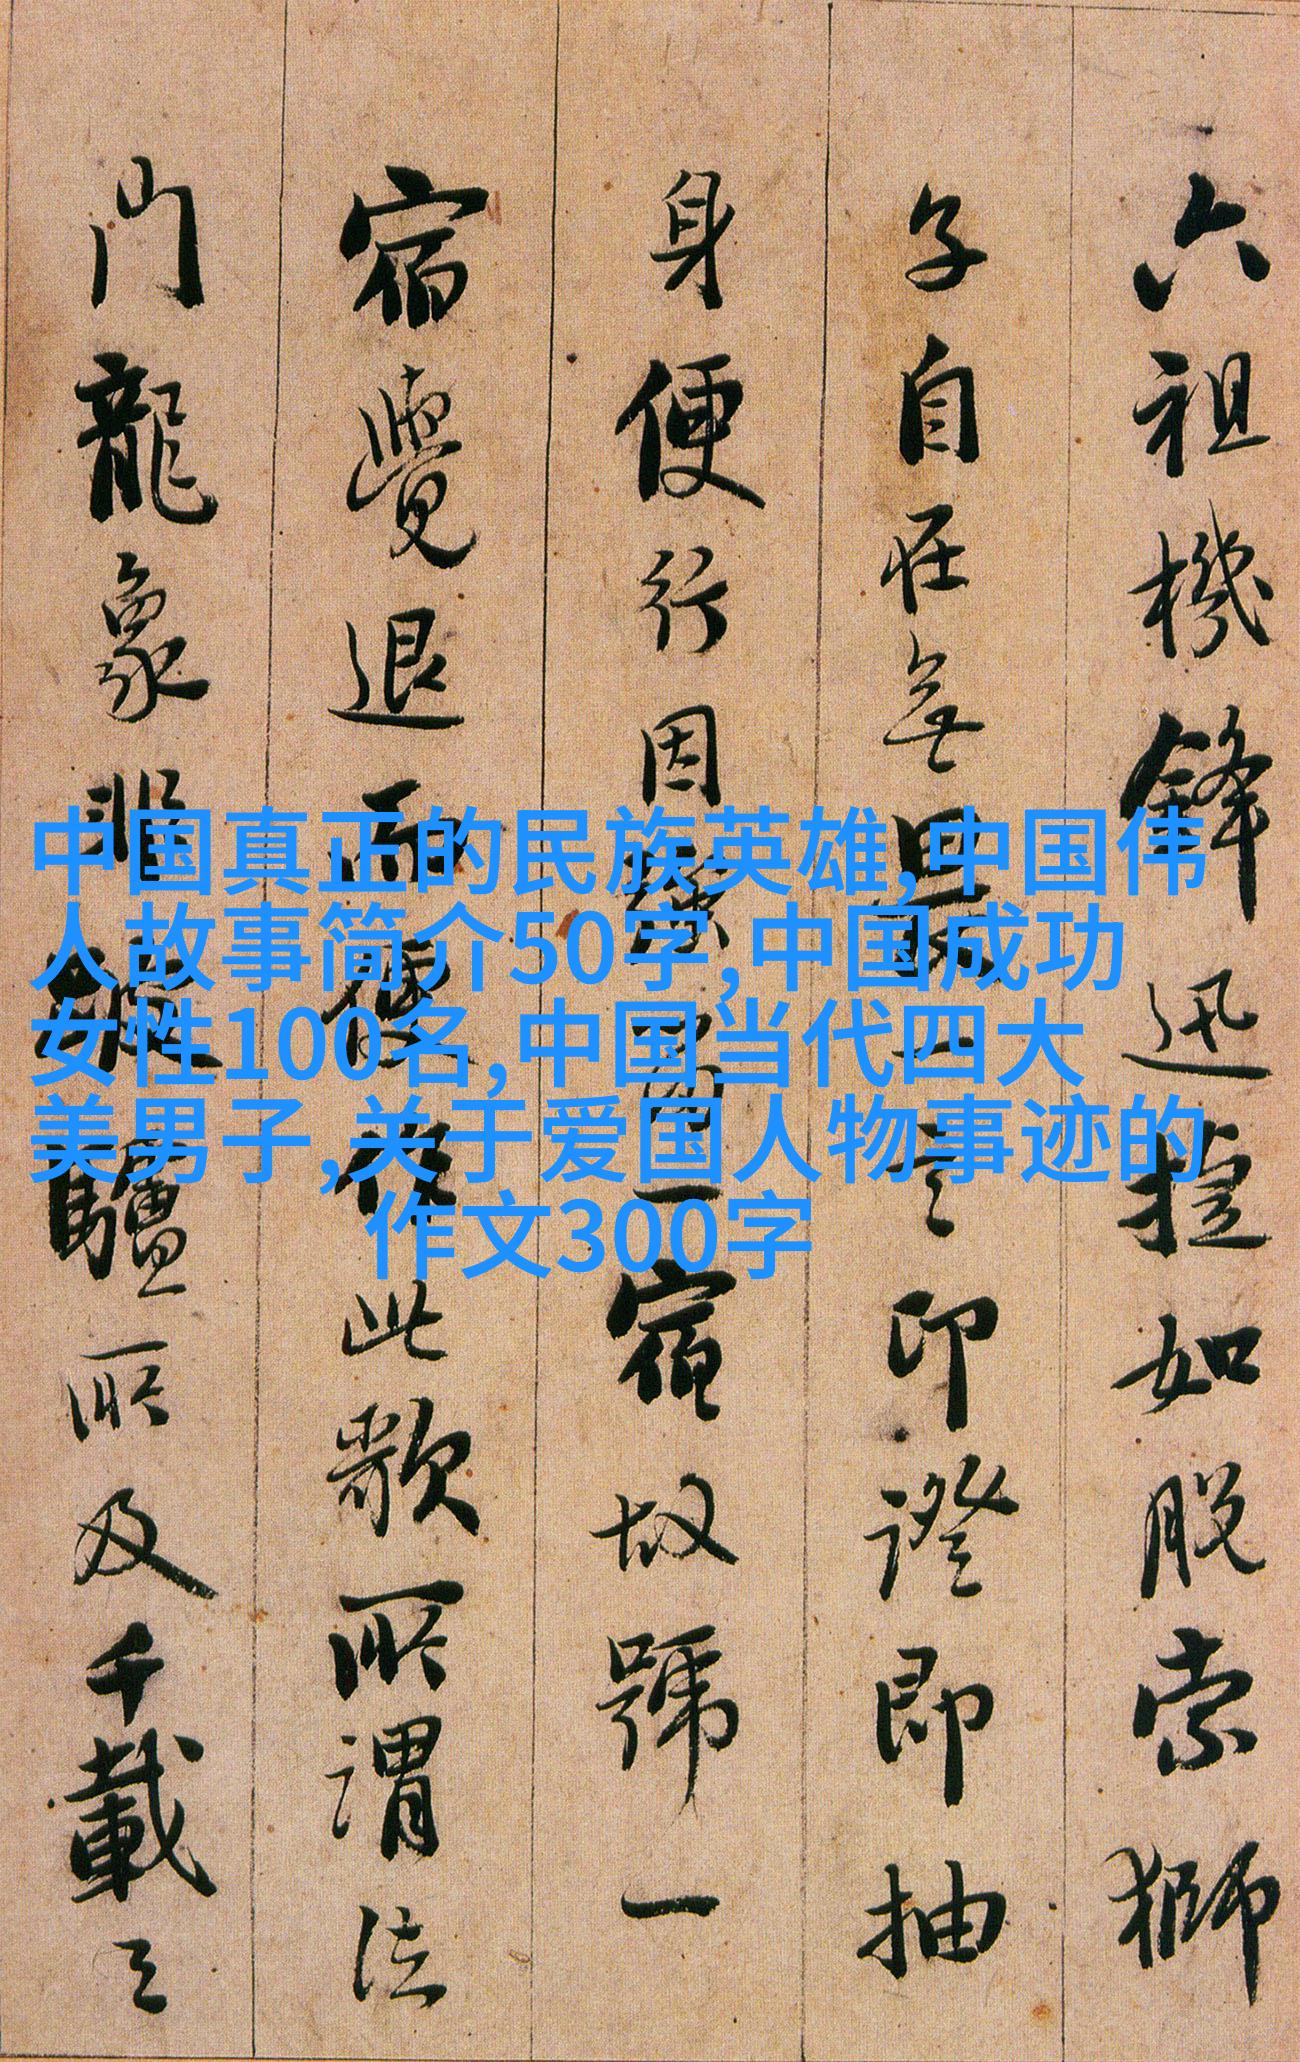 中国真正的民族英雄,中国伟
人故事简介50字,中国成功
女性100名,中国当代四大
美男子,关于爱国人物事迹的
作文300字
六祖機鋒迅捷如脱索獅
子自在無言印證即抽
身便行因留一宿故號一
宿覺退而作此歌所謂法
門龍象非驢所及千載之